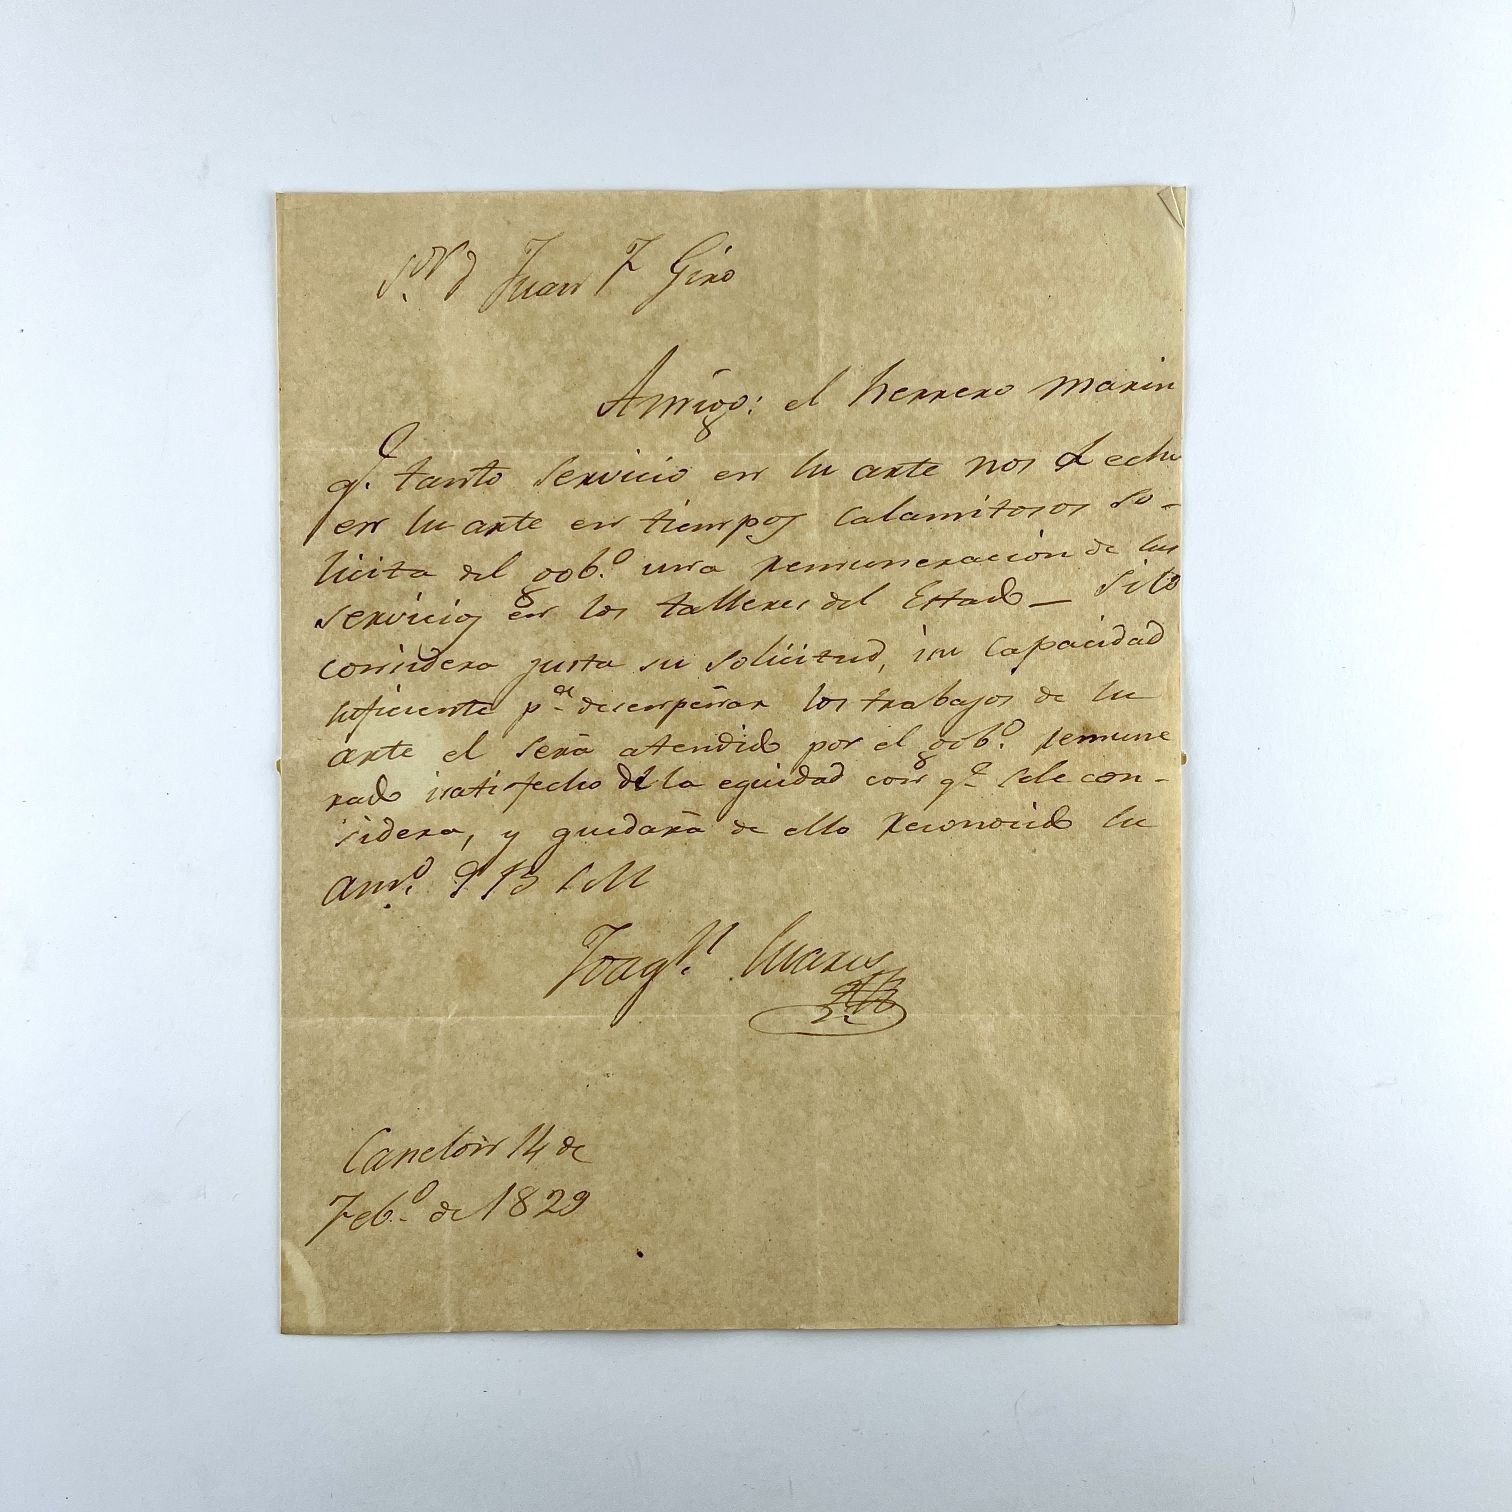 S.or D Juan F Giro
Amigo: el herrero Marin
q.e tanto servicio en su arte nos a echo
en su arte en tiempos calamitosos so-
licita del gob.o una remuneracion de sus
servicios en los talleres del Estado — Si lo
considera justa su solicitud, i su capacidad
suficiente p.a desenpeñar los trabajos de su
arte el será atendido por el gob.o remune
rado i satisfecho de la eguidad con q.e sele con-
sidera, y guedará de ello reconocido su
am.o Q B S M
Joaq.n Suares
Canelon 14 de
Feb.o de 1829